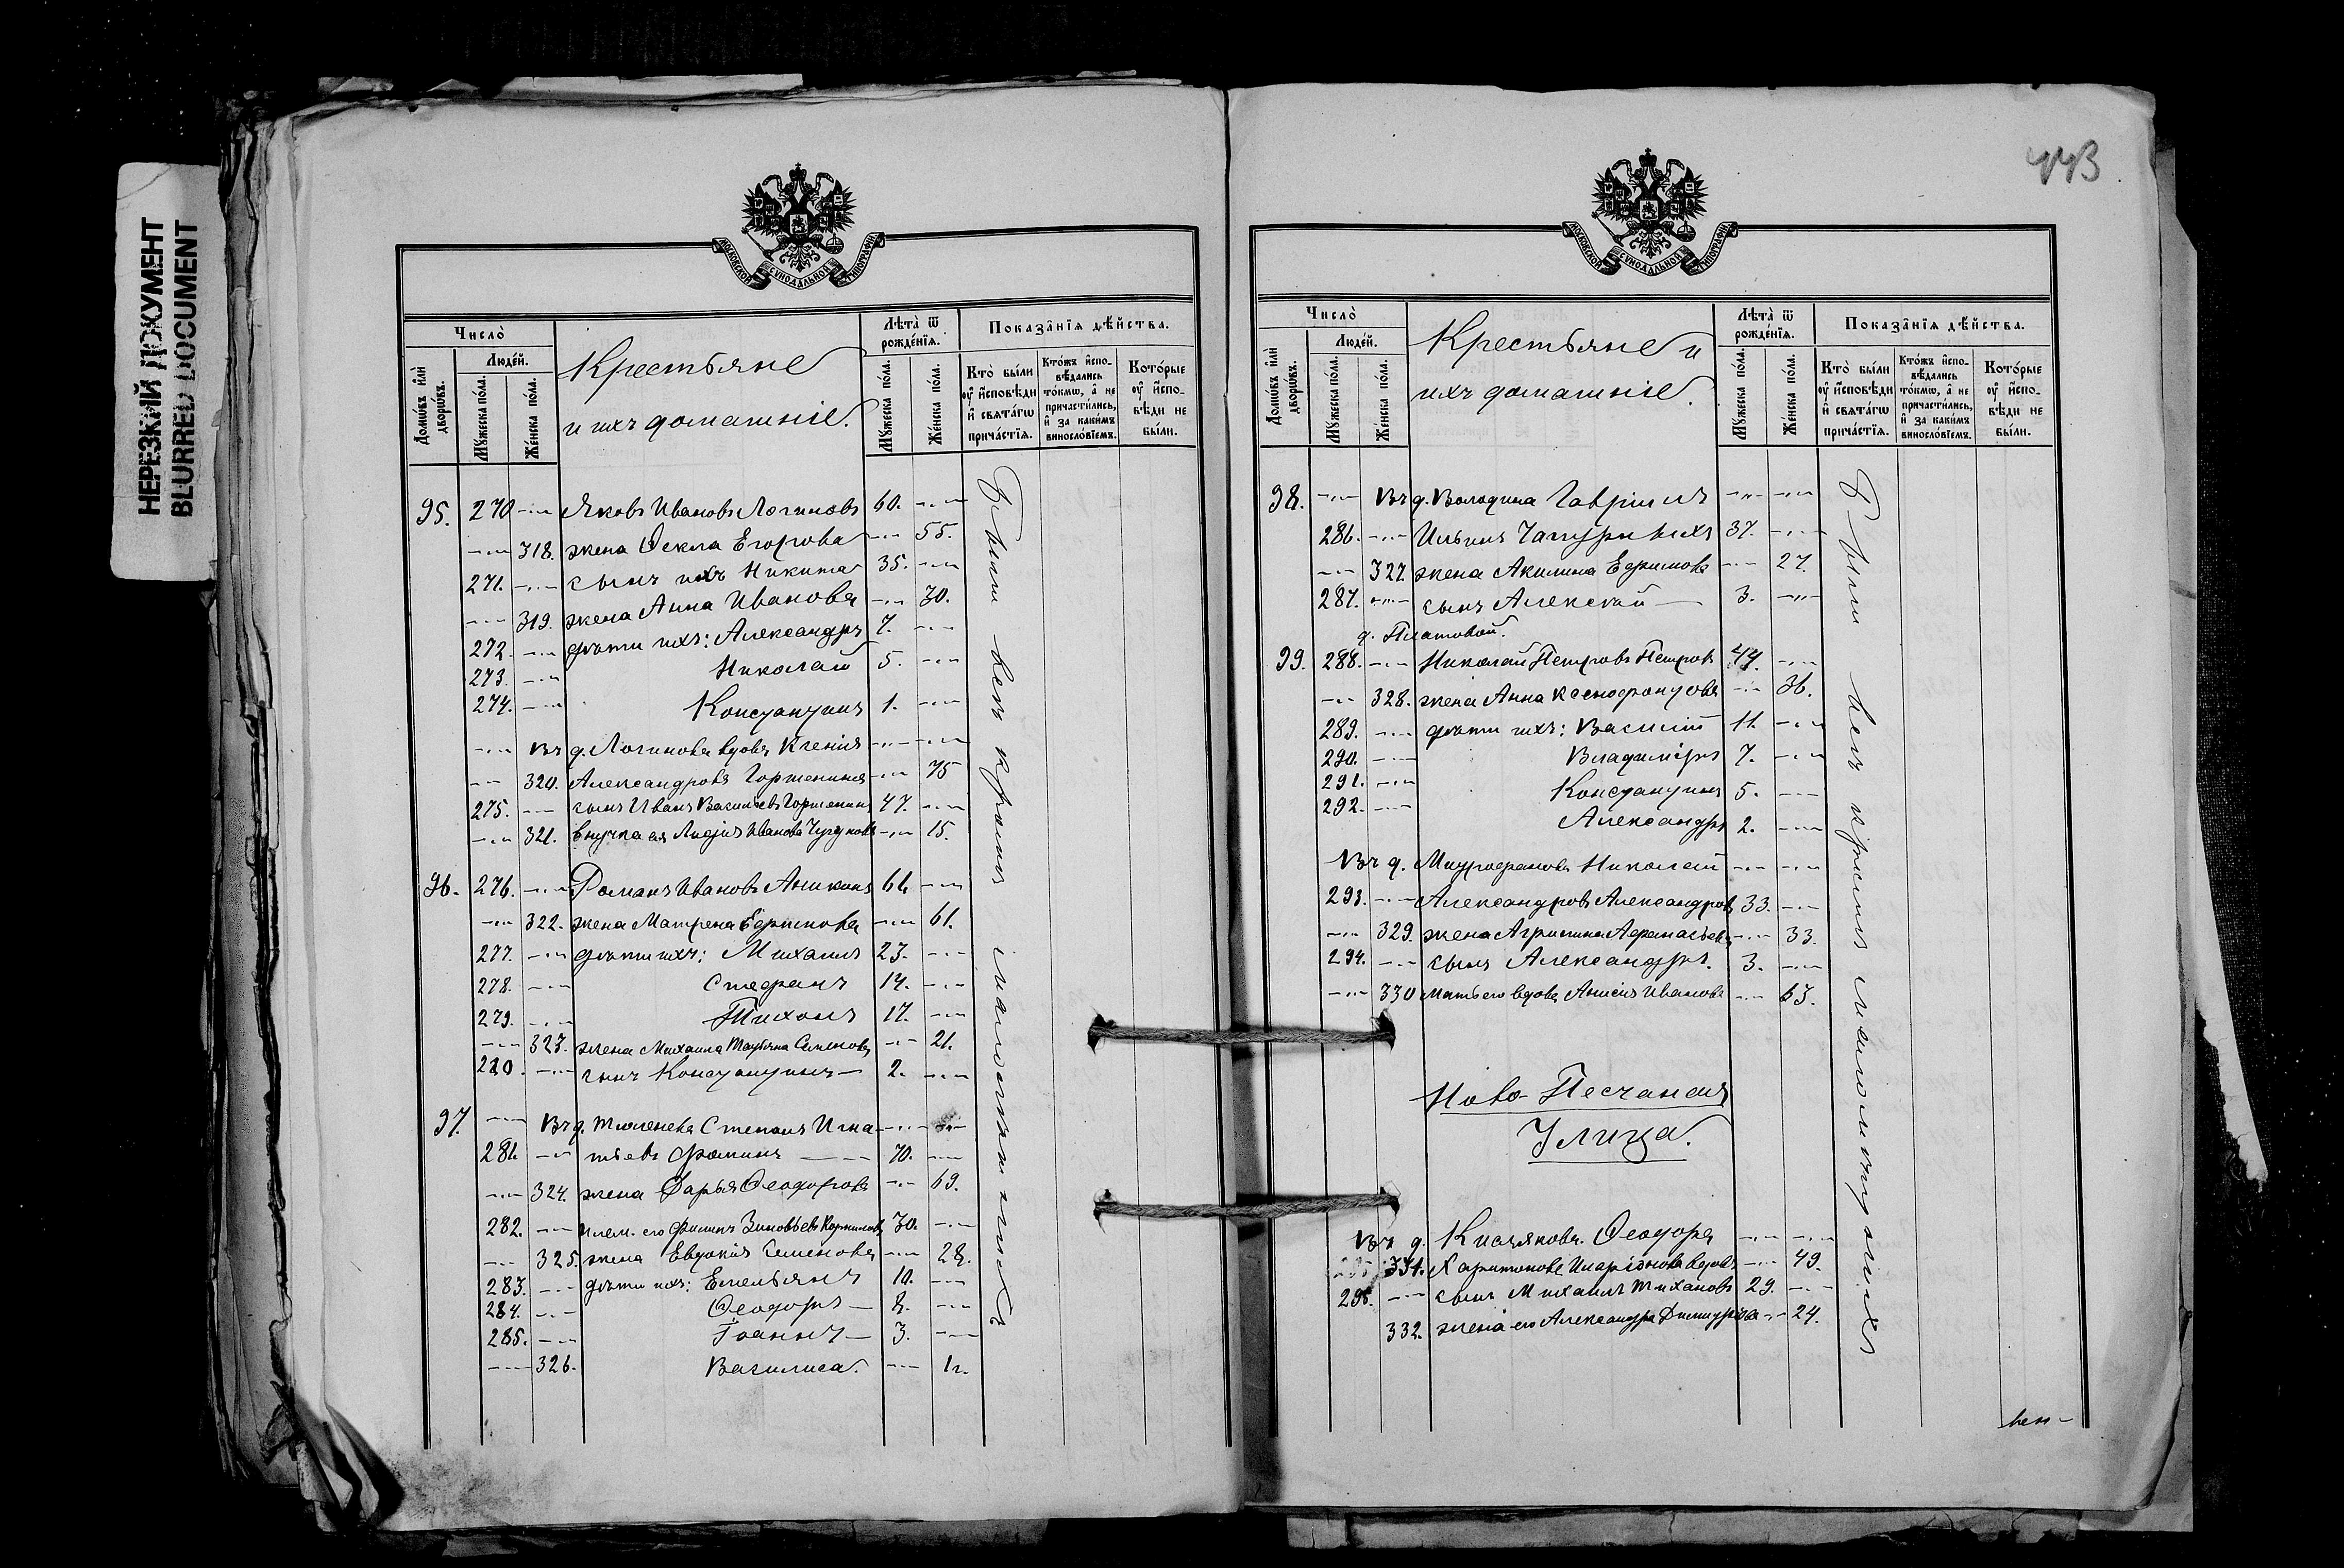 НЕРЕЗКИЙ ДОКУМЕНТ
BLURRED DOCUMENT
МОСКОВСКОЙ СѴНОДАЛЬНОЙ ТИПОГРАФІИ
Число̀
Людéй.
Домѡ́въ и҆лѝ дворѡ́въ.
Мꙋ́жеска по́ла.
Же́нска по́ла.
Крестьяне
и ихъ домашніе.
Лѣта̀ ѿ рожде́нїѧ.
Мꙋ́жеска по́ла.
Же́нска по́ла.
Показа̑нїѧ дѣ́йства.
Кто̀ бы́ли ᲂу҆ и҆́сповѣди и҆ свѧта́гѡ прича́стїѧ.
Кто́жъ и҆спо-вѣ́дались то́кмѡ, а҆ не причасти́лись, и҆ за каки́мъ винословїемъ.
Кото́рые ᲂу҆ и҆спо-вѣди не бы́ли.
95. 270 -„- Яковъ Ивановъ Логиновъ 60. -„-
-„- 318. жена Ѳекла Егорова -„- 55.
271. -„- сынъ ихъ Никита 35. -„-
-„- 319. жена Анна Иванова -„- 30.
272. -„- дѣти ихъ: Александръ 7. -„-
273. -„- Николай 5. -„-
274. -„- Константинъ 1. -„-
-„- Въ д. Логинова вдова Ксенія -„- -„-
-„- 320. Александрова Горшенина -„- 75
275. -„- сынъ Иванъ Васильевъ Горшенинъ 47. -„-
-„- 321. внучка ея Лидія Иванова -„- 15.
96. 276. -„- Романъ Ивановъ Аникинъ 61. -„-
-„- 322. жена Матрена Ефимова -„- 61.
277. -„- дѣти ихъ: Михаилъ 23. -„-
278. -„- Стефанъ 14. -„-
279. -„- Тихонъ 17. -„-
-„- 323. жена Михаила Татьяна Семенова -„- 21.
280. -„- сынъ Константинъ 2. -„-
97. -„- Въ д. Тюленева Степанъ Игна- -„- -„-
281. -„- тьевъ Фоминъ 70. -„-
-„- 324. жена Дарья Ѳеодорова -„- 69.
282. -„- плем. его Филипъ Зиновьевъ Корниловъ 30. -„-
-„- 325. жена Евдокія Семенова -„- 28.
283. -„- дѣти ихъ: Емельянъ 10. -„-
284. -„- Ѳеодоръ 8. -„-
285. -„- Іоаннъ 3. -„-
-„- 326. Василиса. -„- 1г.
Были всѣ кромѣ малолѣтнихъ
443
МОСКОВСКОЙ СѴНОДАЛЬНОЙ ТИПОГРАФІИ
Число̀
Людéй.
Домѡ́въ и҆лѝ дворѡ́въ.
Мꙋ́жеска по́ла.
Же́нска по́ла.
Крестьяне и
ихъ домашніе.
Лѣта̀ ѿ рожде́нїѧ.
Мꙋ́жеска по́ла.
Же́нска по́ла.
Показа̑нїѧ дѣ́йства.
Кто̀ бы́ли ᲂу҆ и҆́сповѣди и҆ свѧта́гѡ прича́стїѧ.
Кто́жъ и҆спо-вѣ́дались то́кмѡ, а҆ не причасти́лись, и҆ за каки́мъ винословїемъ.
Кото́рые ᲂу҆ и҆спо-вѣди не бы́ли.
98. -„- Въ д. Володина Гавріилъ -„- -„-
286. -„- Ильинъ 37. -„-
-„- 327. жена Акилина Ефимова -„- 27.
287. -„- сынъ Алексѣй 3. -„-
д. Платовой.
99. 288. -„- Николай Петровъ Петровъ 44. -„-
-„- 328. жена Анна Ксенофонтова -„- 36.
289. -„- дѣти ихъ: Василій 11. -„-
290. -„- Владиміръ 7. -„-
291. -„- Константинъ 5. -„-
292. -„- Александръ 2. -„-
Въ д. Митрофанова Николай -„- -„-
293. -„- Александровъ Александровъ 33. -„-
-„- 329. жена Агрипина Афанасьева -„- 33.
294. -„- сынъ Александръ. 3. -„-
-„- 330 мать его вдова Анисія Иванова -„- 63.
Ново-Песчаная
Улица.
Въ д. Кислякова Ѳеодора -„- -„-
331. Харитонова Иларіонова вдова -„- 49.
295. -„- сынъ Михаилъ Тихановъ 29. -„-
332. жена его Александра Димитріева -„- 24.
Были всѣ кромѣ малолѣтнихъ